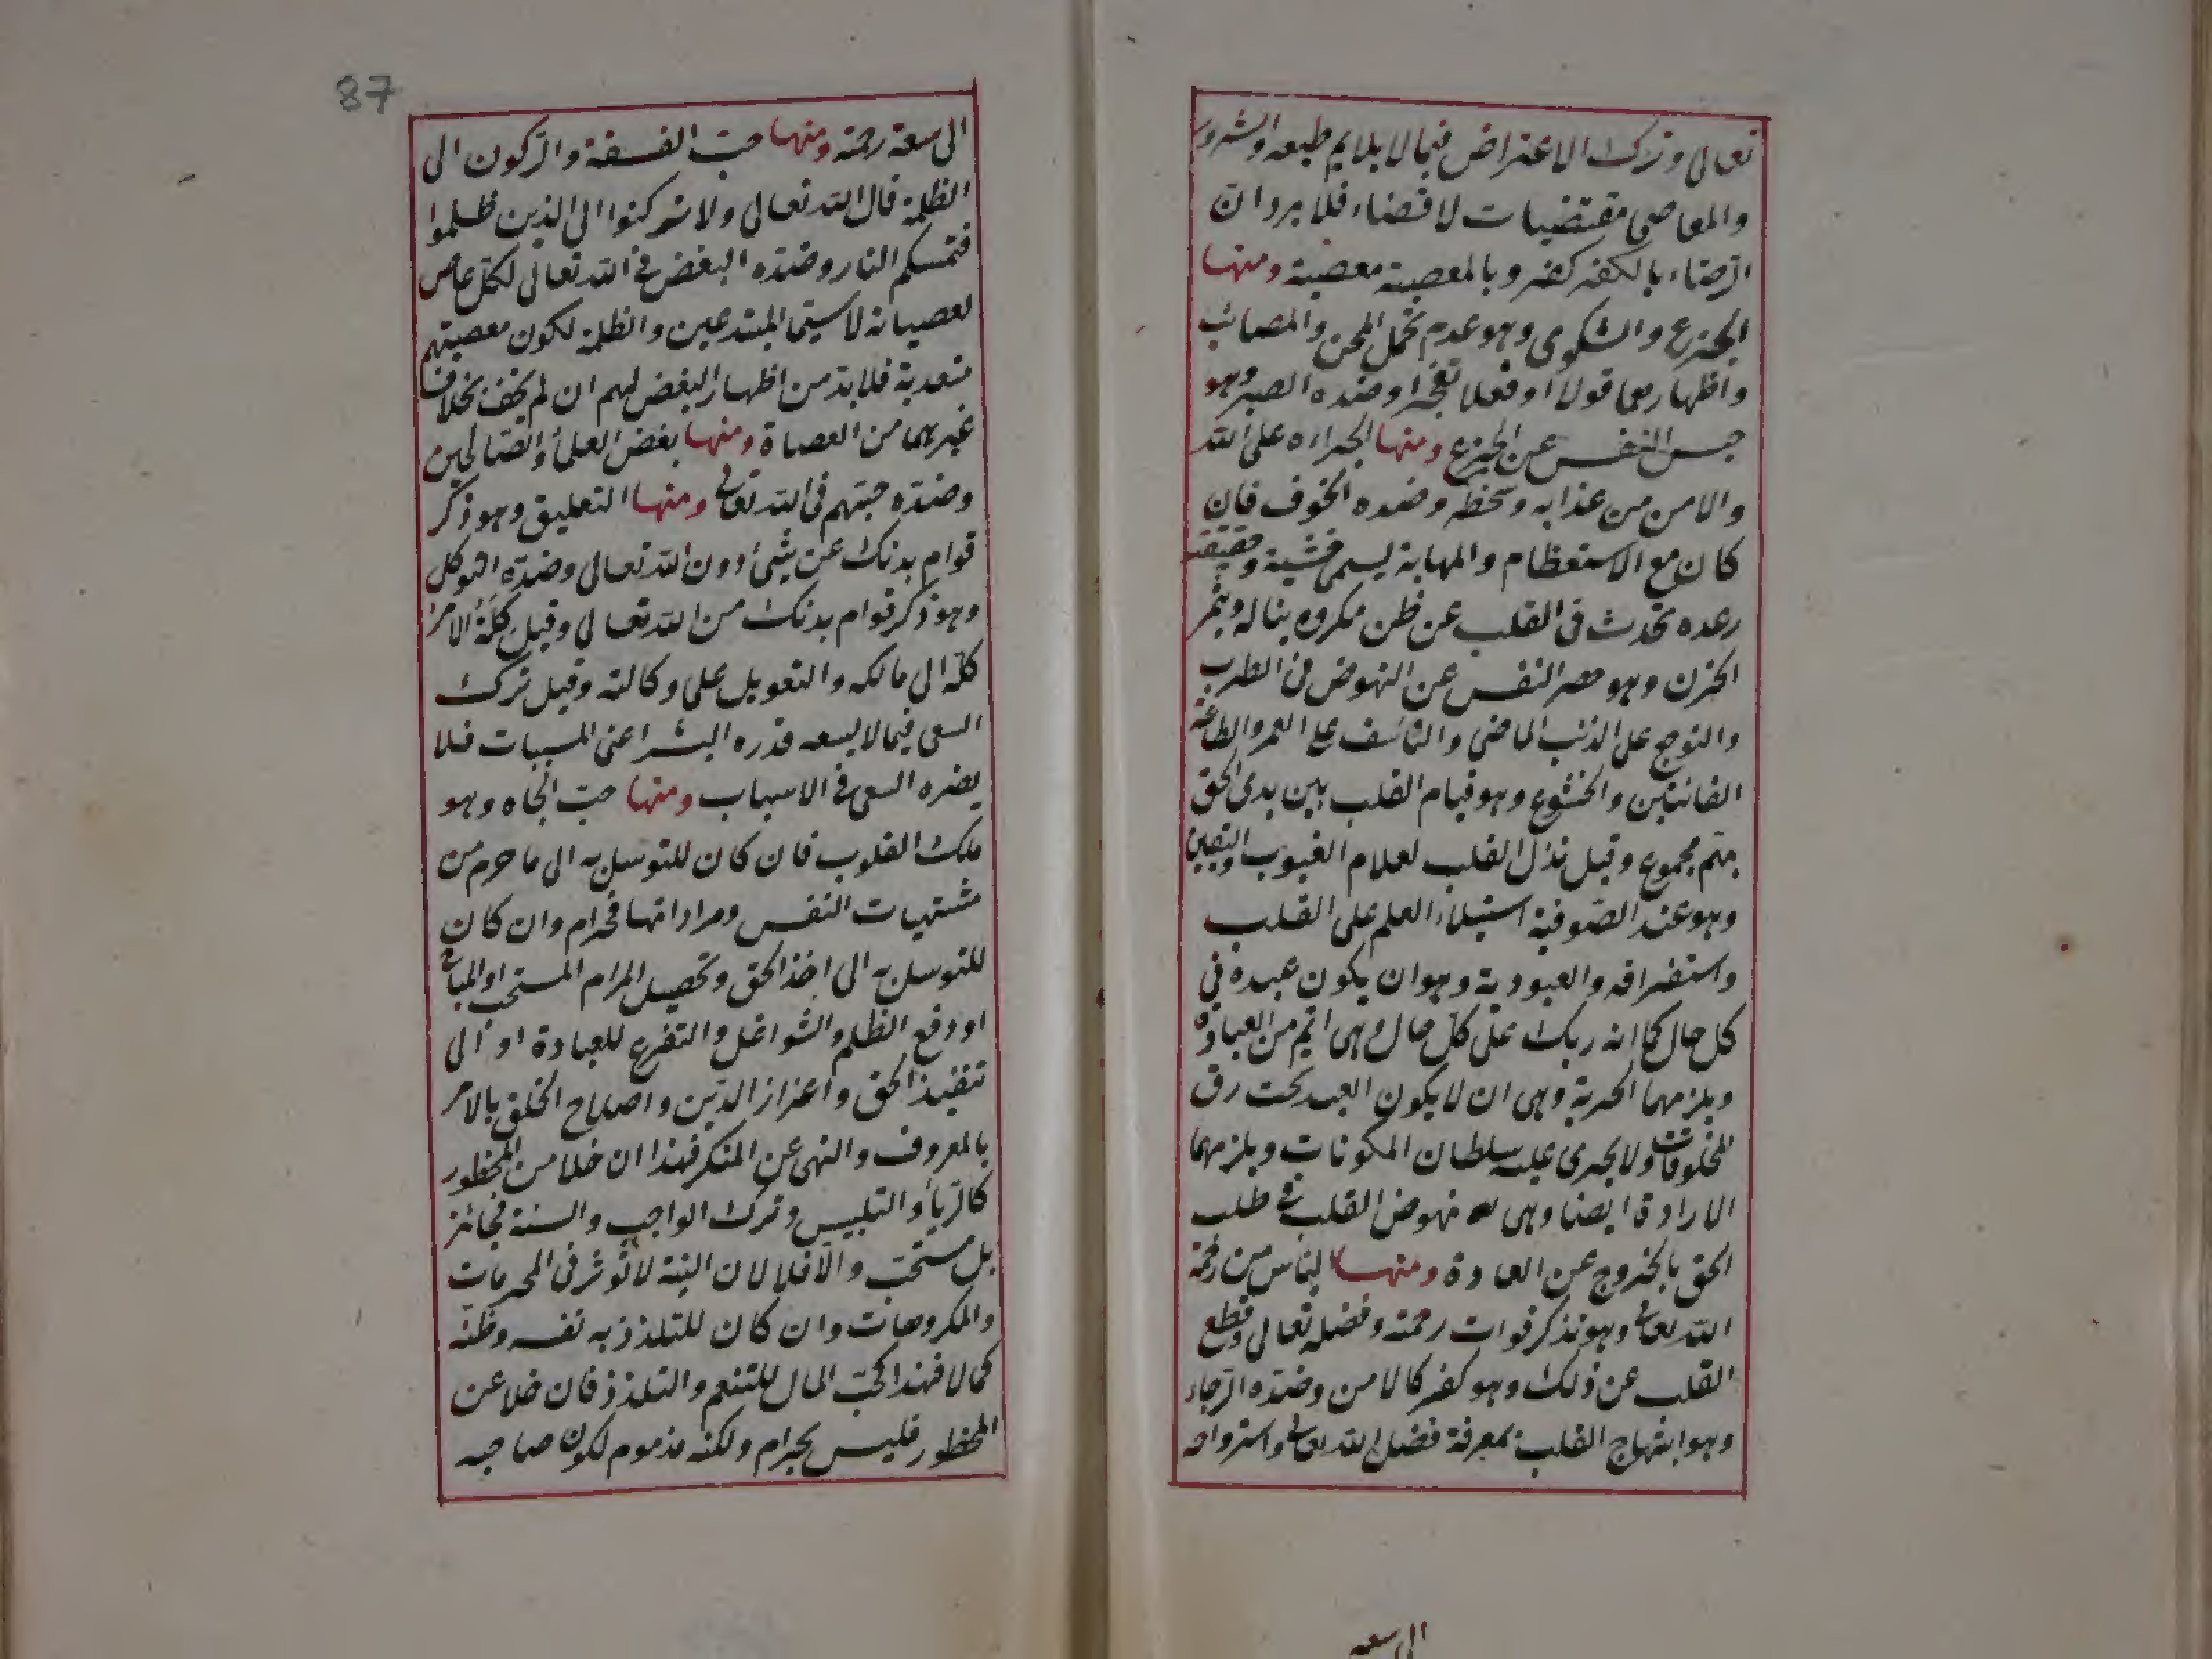 تعالى وترك الاعتراض فيما لا يلايم طبعه والشرور
والمعاصى مقتضيات لا قضاء فلا يرد ان
الرضاء بالكفر كفر وبالمعصية معصية ومنها
الجزع والشكوى وهو عدم تحمل المحن والمصائب
واظهارهما قولا او فعلا تضجرا وضده الصبر وهو
حبس النفس عن الجزع ومنها الجراءة على الله
والامن من عذابه وسخطه وضده الخوف فان
كان مع الاستعظام والمهابة يسمى خشية وحقيقته
رعدة تحدث فى القلب عن ظن مكروه يناله ويثمر
الحزن وهو حصر النفس عن النهوض فى الطرب
والتوجع على الذنب الماضى والتأسف على العمر والطاعة
الفائتتين والخشوع وهو قيام القلب بين يدى الحق
بهم مجموع وقيل تذلل القلب لعلام الغيوب واليقين
وهو عند الصوفية استيلاء العلم على القلب
واستغراقه والعبودية وهو ان يكون عبده فى
كل حال كما انه ربك على كل حال وهى اتم من العبادة
ويلزمها الحرية وهى ان لا يكون العبد تحت رق
المخلوقات ولا يجرى عليه سلطان المكونات ويلزمهما
الارادة ايضا وهى نهوض القلب فى طلب
الحق بالخروج عن العادة ومنها اليأس من رحمة
الله تعالى وهو تذكر فوات رحمته وفضله تعالى وقطع
القلب عن ذلك وهو كفر كالامن وضده الرجاء
وهو ابتهاج القلب بمعرفة فضل الله تعالى واسترواحه
الى سعه
87
الى سعة رحمته ومنها حب الفسقة والركون الى
الظلمة قال الله تعالى ولا تركنوا الى الذين ظلموا
فتمسكم النار وضده البغض فى الله تعالى لكل عاص
لعصيانه لا سيما المبتدعين والظلمة لكون معصيتهم
متعدية فلا بد من اظهار البغض لهم ان لم يخف بخلاف
غيرهما من العصاة ومنها بغض العلماء والصالحين
وضده حبتهم فى الله تعالى ومنها التعليق وهو ذكر
قوام بدنك عن شئ دون الله تعالى وضده التوكل
وهو ذكر قوام بدنك من الله تعالى وقيل كلة الامر
كله الى مالكه والتعويل على وكالته وقيل ترك
السعى فيما لا يسعه قدرة البشر اعنى المسببات فلا
يضره السعى فى الاسباب ومنها حب الجاه وهو
ملك القلوب فان كان للتوسل به الى ما حرم من
مشتهيات النفس ومراداتها فحرام وان كان
للتوسل به الى اخذ الحق وتحصيل المرام المستحب او المباح
او دفع الظلم والشواغل والتفرغ للعبادة او الى
تنفيذ الحق واعزاز الدين واصلاح الخلق بالامر
بالمعروف والنهى عن المنكر فهذا ان خلا من المحظور
كالرياء والتلبيس وترك الواجب والسنة فجائز
بل مستحب والا فلا لان النية لا تؤثر فى المحرمات
والمكروهات وان كان للتلذذ به نفسه وظنه
كمالا فهذا كحب المال للتنعم والتلذذ فان خلا عن
المحظور فليس بحرام ولكنه مذموم لكون صاحبه